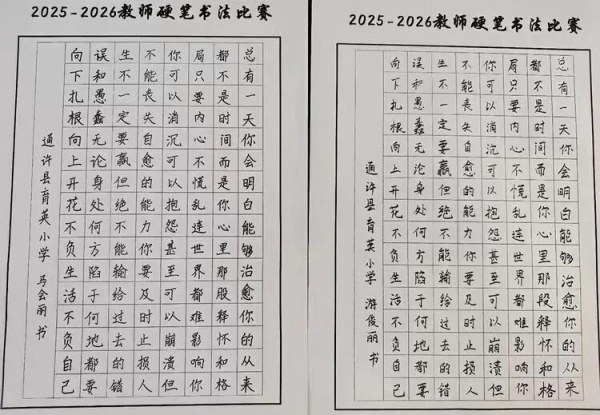 2025-2026教师硬笔书法比赛
总有一天你会明白能够治愈你的从来
都不是时间而是你心里那股释怀和格
局只要内心不慌乱连世界都难影响你
你可以消沉可以抱怨甚至可以崩溃但
不能丧失自愈的能力你要及时止损人
生不一定要赢但绝不能输给过去的错
误和愚蠢无论身处何方陷于何地都要
向下扎根向上开花不负生活不负自己
通许县育英小学 马会丽 书
2025-2026教师硬笔书法比赛
总有一天你会明白能够治愈你的从来
都不是时间而是你心里那段释怀和格
局只要内心不慌乱连世界都难影响你
你可以消沉可以抱怨甚至可以崩溃但
不能丧失自愈的能力你要及时止损人
生不一定要赢但绝不能输给过去的错
误和愚蠢无论身处何方陷于何地都要
向下扎根向上开花不负生活不负自己
通许县育英小学 游俊丽 书